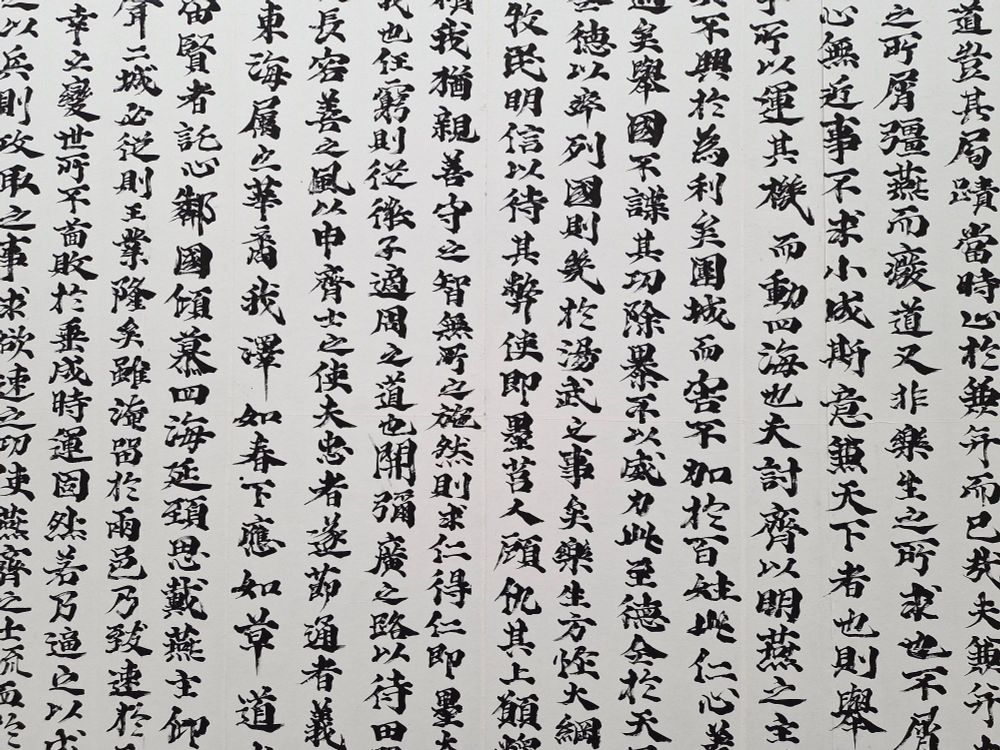 道豈其局蹟當時心於兼并而已哉夫兼并
之所屑彊燕而廢道又非樂生之所求也不屑
心無近事不求小成斯意兼天下者也則舉
所以運其機而動四海也夫討齊以明燕之主
不興於為利矣圍城而害不加於百姓此仁心著
矣舉國不謀其功除暴不以威力此至德全於天
德以率列國則幾於湯武之事矣樂生方恢大綱
牧民明信以待其弊使即墨莒人顧仇其上願
我猶親善守之智無所之施然則求仁得仁即墨大
也任窮則從微子適周之道也開彌廣之路以待田
長容善之風以申齊士之使夫忠者遂節通者義
東海屬之華裔我澤如春下應如草道
賢者託心鄰國傾慕四海延頸思戴燕主仰
聲二城必從則王業隆矣雖淹留於兩邑乃致速於
幸之變世所不啚敗於垂成時運固然若乃逼之以
以兵則攻取之事求欲速之功使燕齊之士流血於